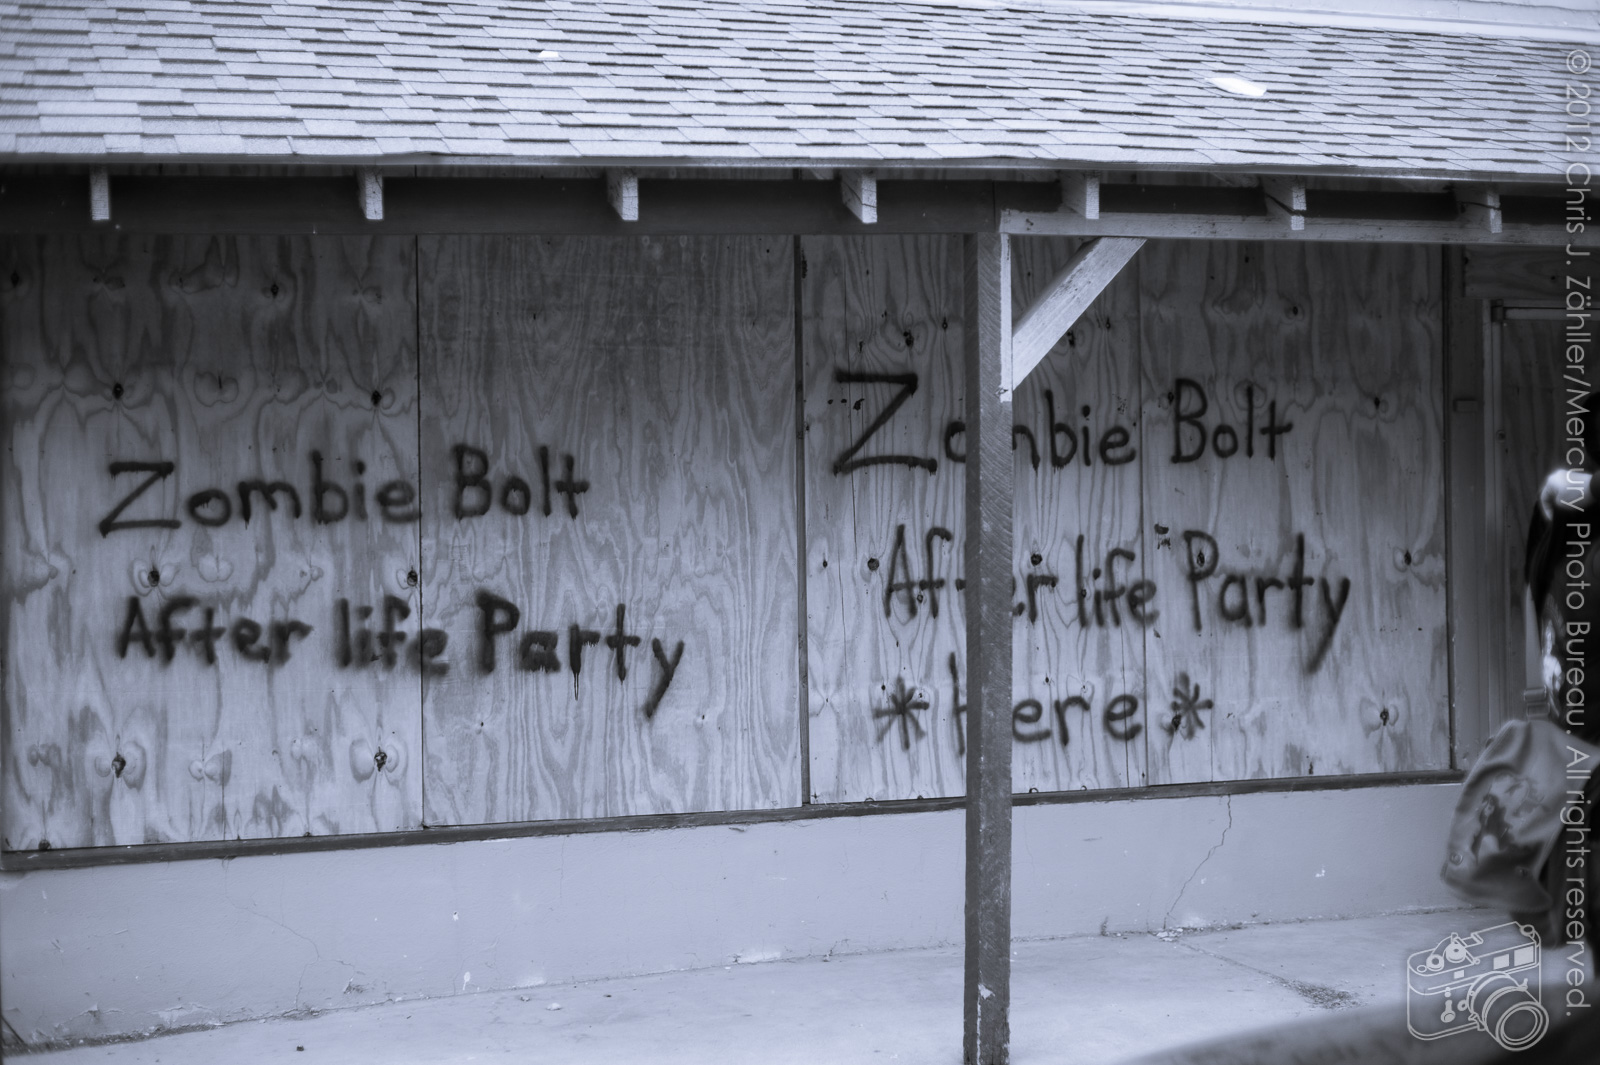 Zombie Bolt
After life Party
Zombie Bolt
After life Party
* Here *
© 2012 Chris J. Zähller/Mercury Photo Bureau. All rights reserved.